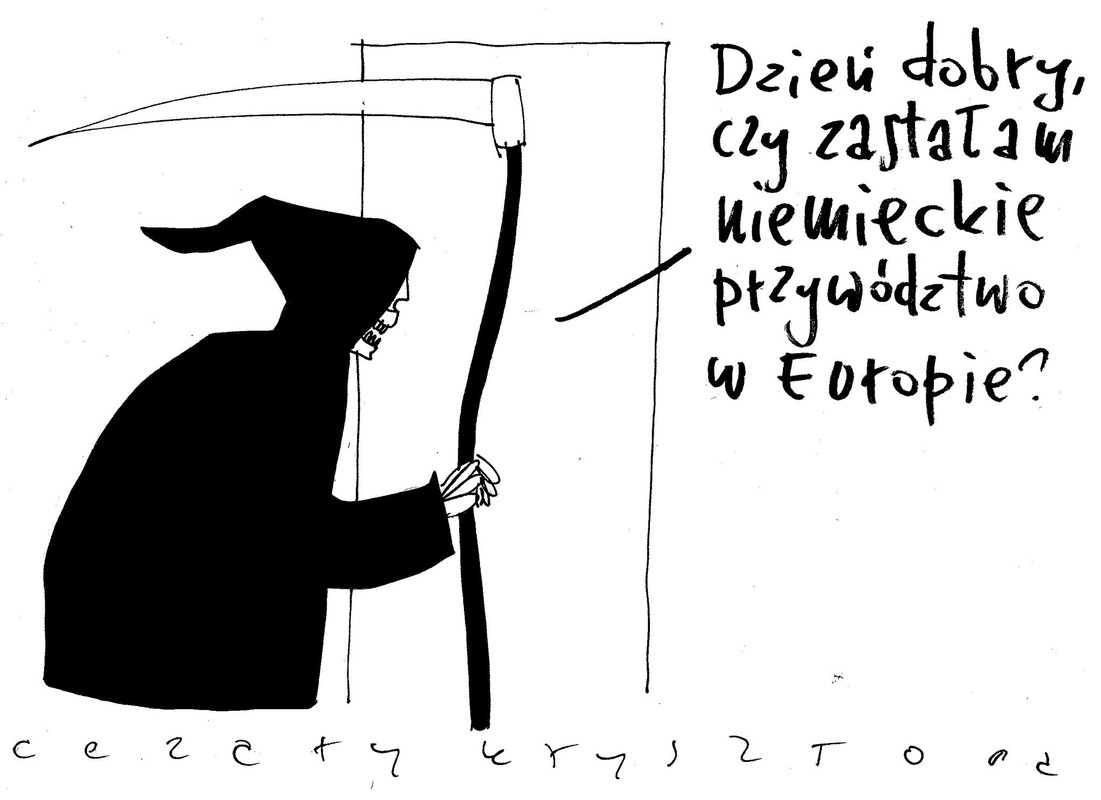 Dzień dobry,
czy zastałam
niemieckie
przywództwo
w Europie?
cezary krysztopa